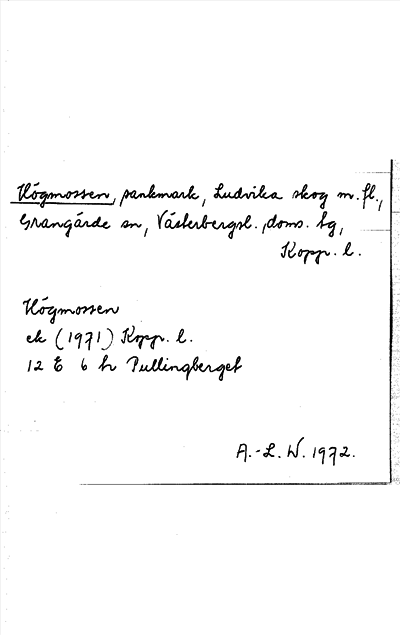 Högmossen, sankmark, Ludvika skog m.fl.,
Grangärde sn, Västerbergsl. doms. tg,
Kopp. l.
Högmossen
ek (1971) Kopp. l.
12 E 6 h Pullingberget
A.-L. W. 1972.